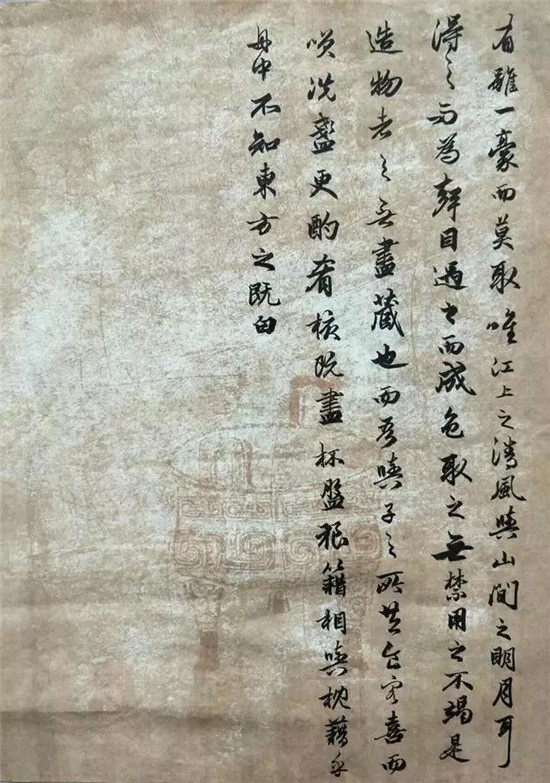 有雖一豪而莫取唯江上之清風與山間之明月耳
得之而為聲目遇之而成色取之無禁用之不竭是
造物者之無盡藏也而吾與子之所共食客喜而
唉洗盞更酌肴核既盡杯盤狼籍相與枕藉乎
舟中不知東方之既白